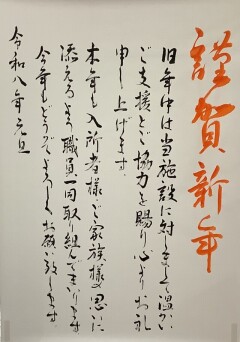 謹賀新年
旧年中は当施設に対しまして温かい
ご支援とご協力を賜り心よりお礼
申し上げます
本年も入所者様、ご家族様の思いに
添えるよう職員一同取り組んでまいります
今年もどうぞよろしくお願い致します
令和八年元旦